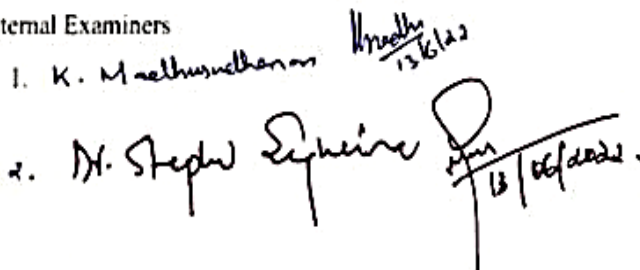 ternal Examiners
1. K. Madhusudhanan 13/6/22
2. Dr. Stephen Sequeira 13/06/2022.